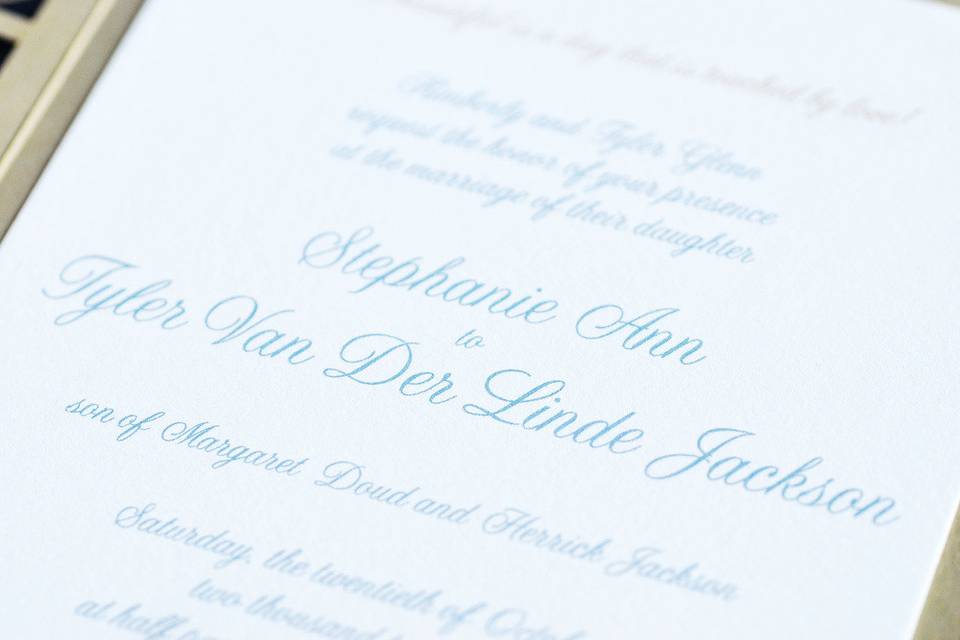 is a day that is touched by love!
Kimberly and Tyler Glenn
request the honor of your presence
at the marriage of their daughter
Stephanie Ann
to
Tyler Van Der Linde Jackson
son of Margaret Doud and Herrick Jackson
Saturday, the twentieth of
two thousand
at half